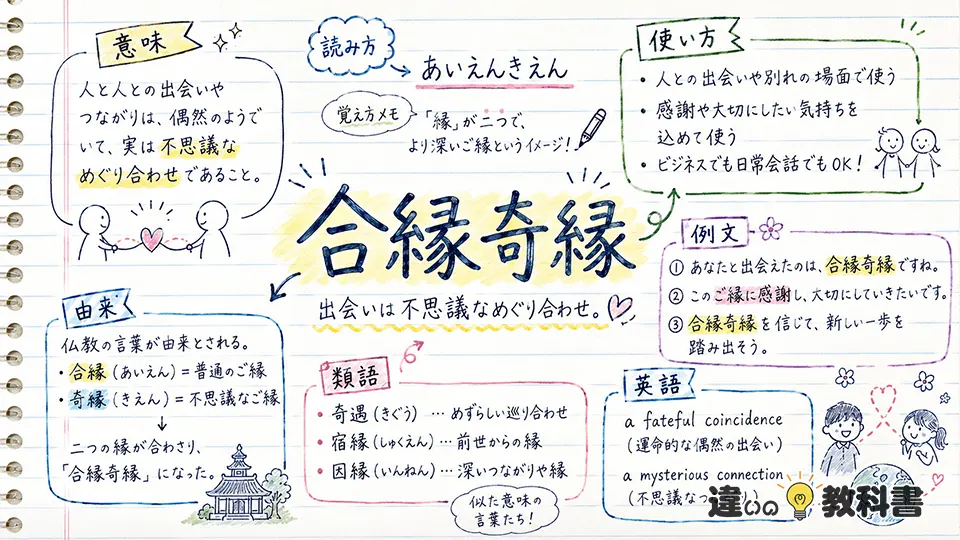 意味
人と人との出会いや
つながりは、偶然のようで
いて、実は不思議な
めぐり合わせであること。
読み方
あいえんきえん
覚え方メモ
「縁」が二つで、
より深いご縁というイメージ!
使い方
• 人との出会いや別れの場面で使う
• 感謝や大切にしたい気持ちを
込めて使う
• ビジネスでも日常会話でもOK!
合縁奇縁
出会いは不思議なめぐり合わせ。
例文
① あなたと出会えたのは、合縁奇縁ですね。
② このご縁に感謝し、大切にしていきたいです。
③ 合縁奇縁を信じて、新しい一歩を
踏み出そう。
由来
仏教の言葉が由来とされる。
・合縁(あいえん)=普通のご縁
・奇縁(きえん)=不思議なご縁
↓
二つの縁が合わさり、
「合縁奇縁」になった。
類語
• 奇遇(きぐう)…めずらしい巡り合わせ
• 宿縁(しゅくえん)…前世からの縁
• 因縁(いんねん)…深いつながりや縁
似た意味の
言葉たち!
英語
a fateful coincidence
(運命的な偶然の出会い)
a mysterious connection
(不思議なつ
違いの教科書